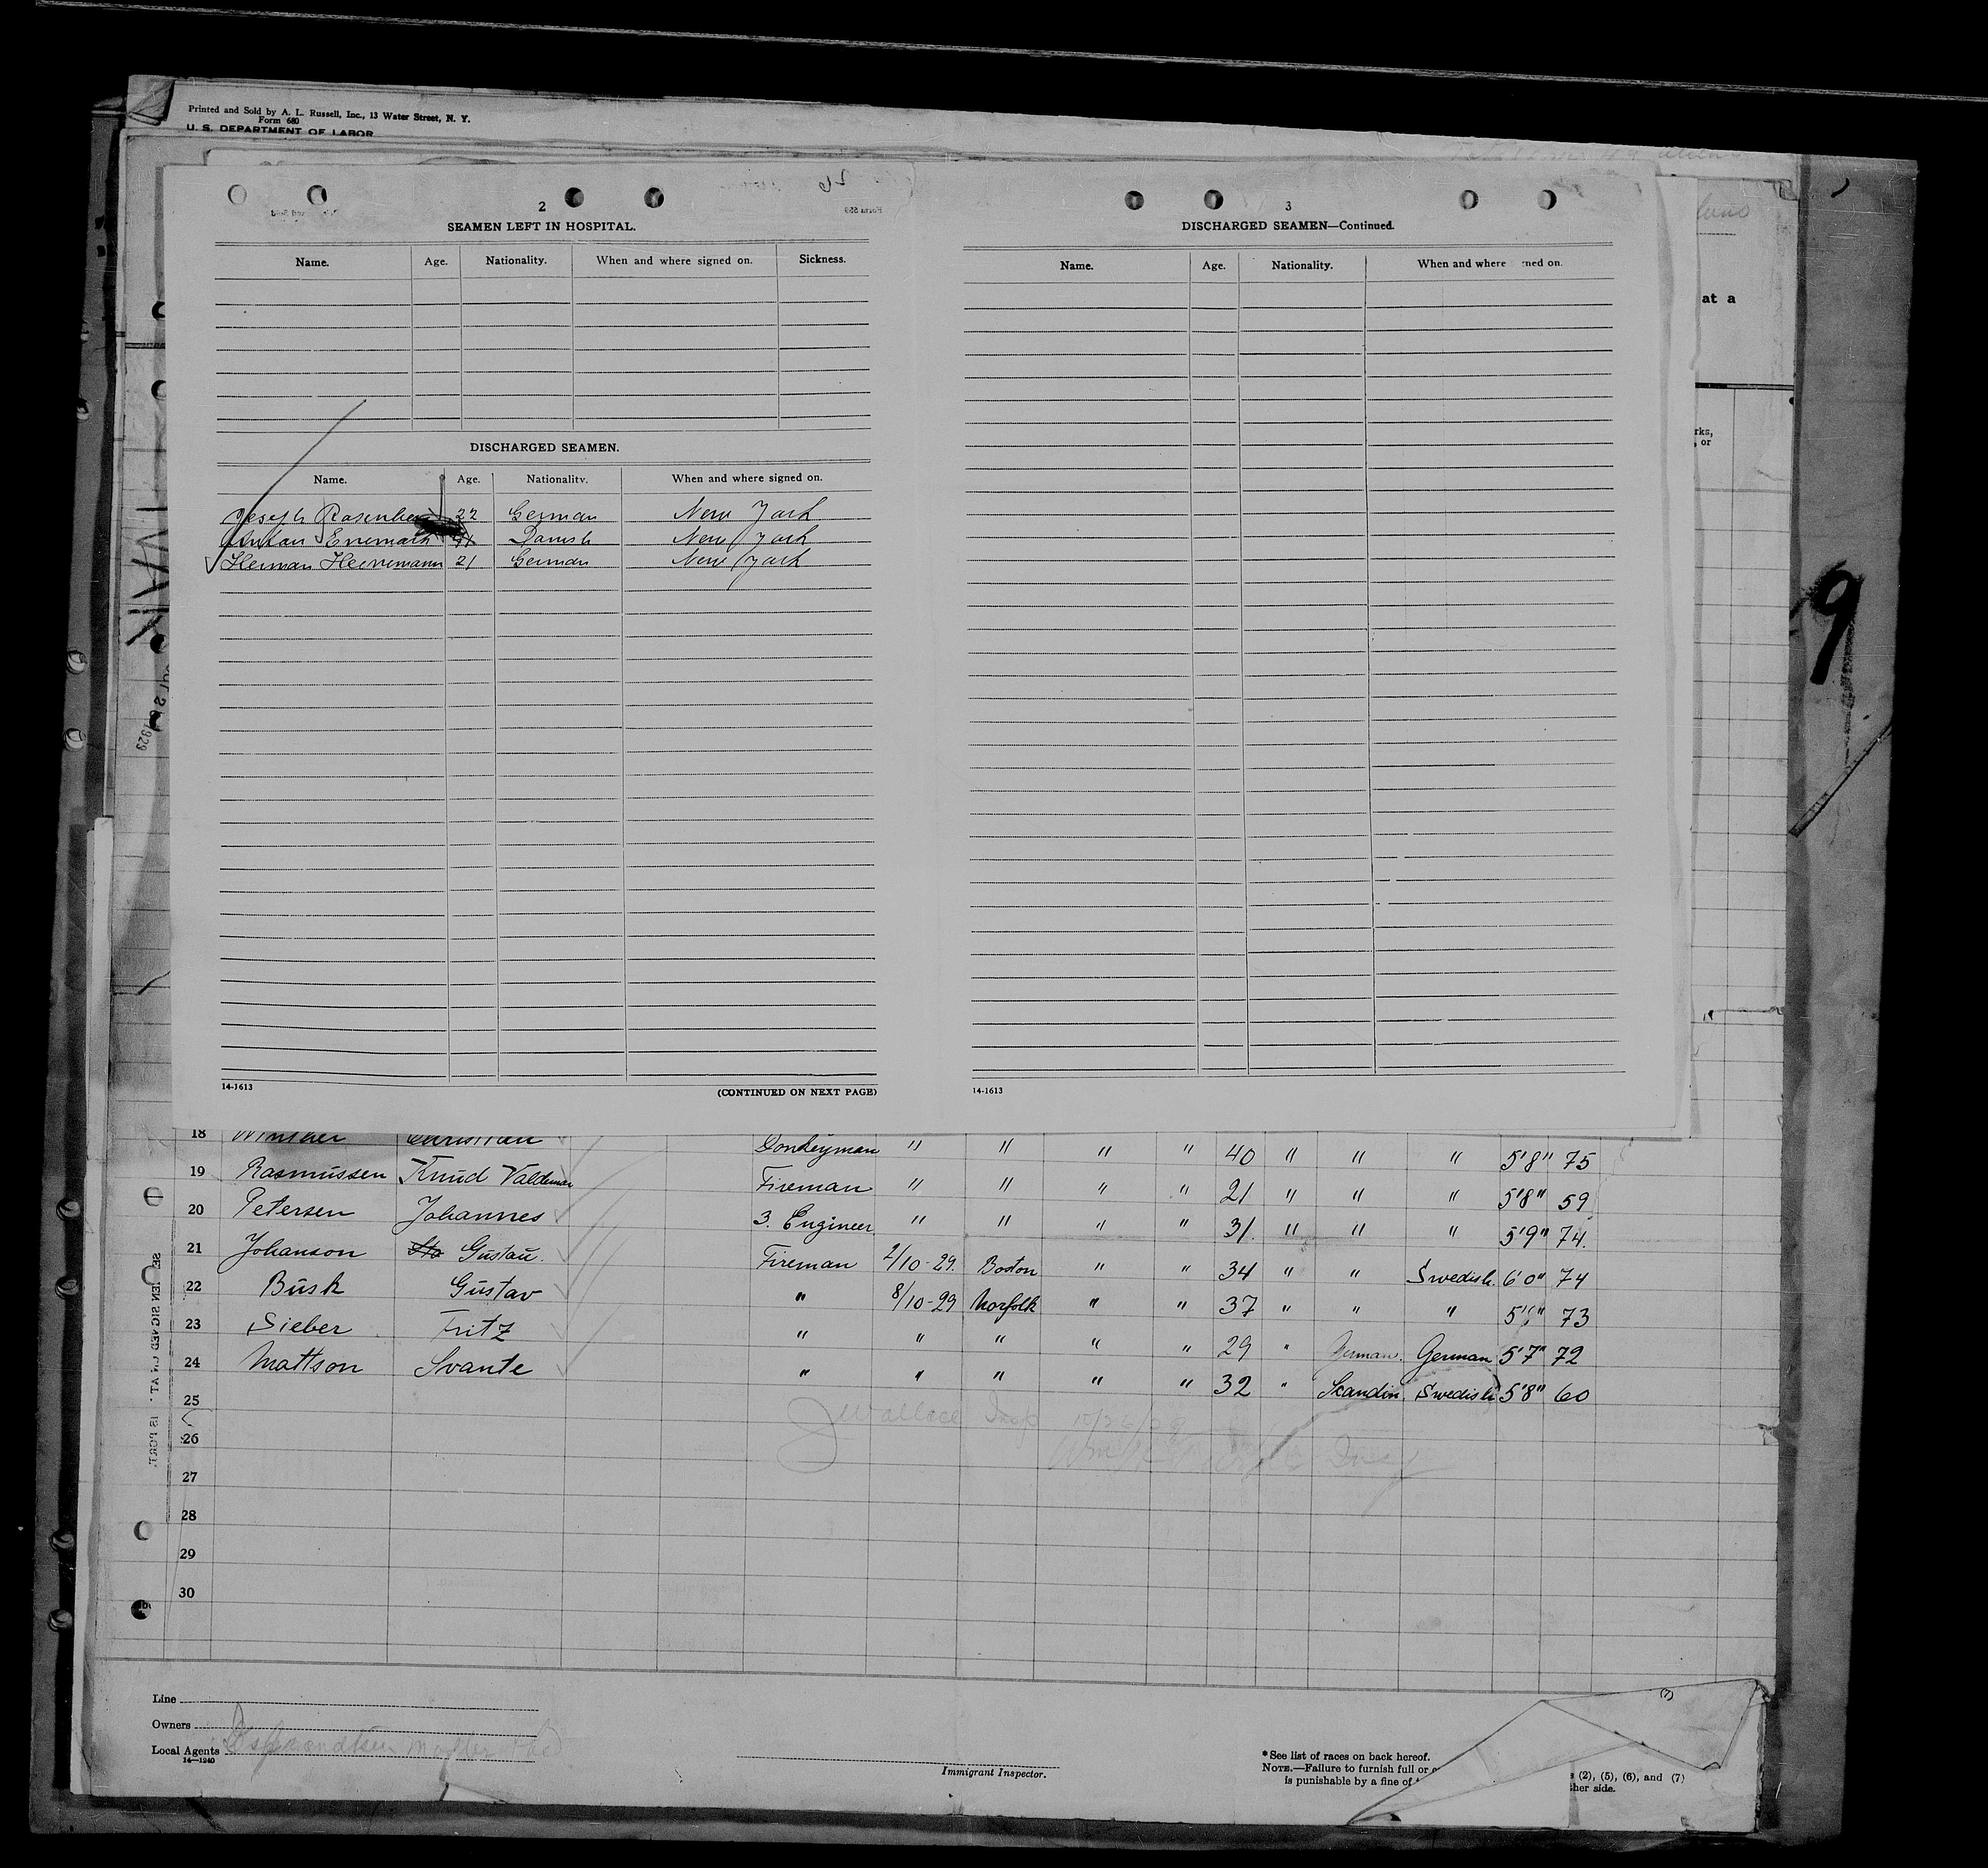 Printed and Sold by A. L. Russell, Inc., 13 Water Street, N. Y.
Form 680
U. S. DEPARTMENT OF LABOR
2
SEAMEN LEFT IN HOSPITAL.
Name. Age. Nationality. When and where signed on. Sickness.
DISCHARGED SEAMEN.
Name. Age. Nationality. When and where signed on.
Joseph Rosenberg 22 German New York
Enemark Danish New York
Herman Heinemann 21 German New York
14-1613 (CONTINUED ON NEXT PAGE)
3
DISCHARGED SEAMEN—Continued.
Name. Age. Nationality. When and where ned on.
14-1613
at a
rks,
, or
9
1929
18 Christian Donkeyman " " " " 40 " " " 5'8" 75
19 Rasmussen Knud Valdemar Fireman " " " " 21 " " " 5'8" 59
20 Petersen Johannes 3. Engineer " " " " 31 " " " 5'9" 74
21 Johanson Gustav. Fireman 2/10-29. Boston " " 34 " " Swedish. 6'0" 74
22 Busk Gustav " 8/10-29 Norfolk " " 37 " " " 73
23 Sieber Fritz " " " " " 29 " German. German 5'7" 72
24 Mattson Svante " " " " " 32 " Scandin. Swedish 5'8" 60
25
Wallace Insp 10/26/29
26
27
28
29
30
Line
Owners
Local Agents
14—1240
Immigrant Inspector.
(7)
*See list of races on back hereof.
NOTE.—Failure to furnish full or
is punishable by a fine of
(2), (5), (6), and (7)
her side.